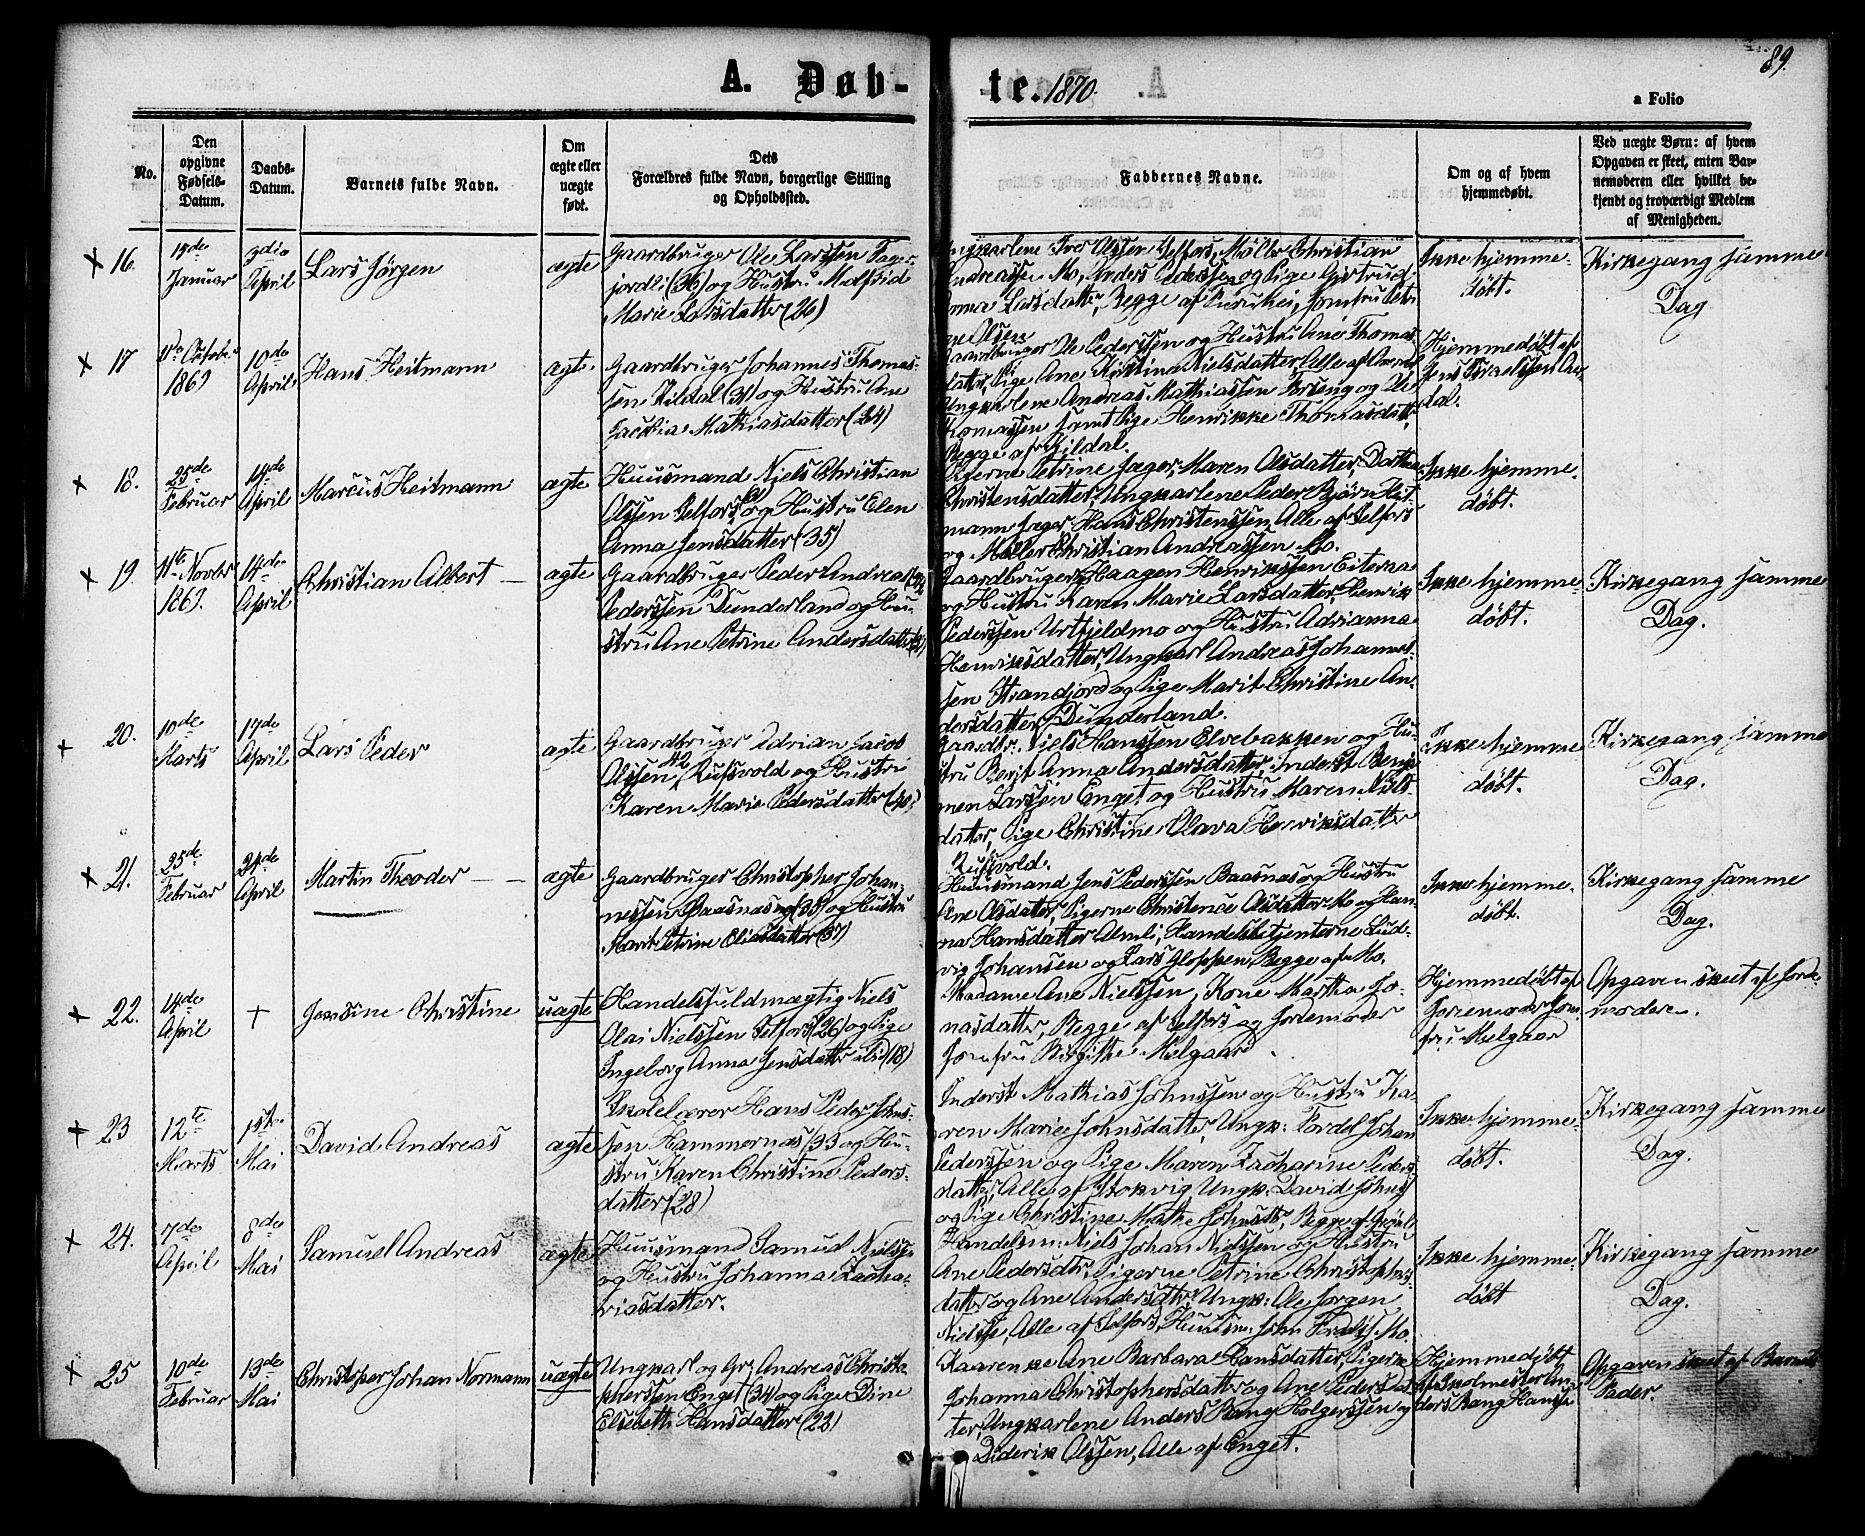 89.
A. Døb-
te. 1870.
a Folio
No.
Den
opgivne
Fødsels-
Datum.
Daabs-
Datum.
Barnets fulde Navn.
Om
ægte eller
uægte
født.
Dets
Forældres fulde Navn, borgerlige Stilling
og Opholdssted.
Faddernes Navne.
Om og af hvem
hjemmedøbt.
Ved uægte Børn: af hvem
Opgaven er skeet, enten Bar-
nemoderen eller hvilket be-
kjendt og troværdigt Medlem
af Menigheden.
16.
Januar
April
Lars Jörgen
ægte
Gaardbruger Ole Larssen Fager-
jordli (36) og Hustru Malfrid
Marie Larsdatter (26)
Ungkarlene Iver Olssen Selfors, Möller Christian
Andreassen Mo, Anders Pederssen og Pige Gjertrud
Anna Larsdatter, Begge af
Ikke hjemme-
döbt.
Kirkegang samme
Dag
17
1869
10de
April
Hans Heitmann
ægte
Gaardbruger Johannes Thomas-
sen Kildal (31) og Hustru Ane
Jacobia Mathiasdatter (24)
Gaardbruger Ole Pederssen og Hustru Ane Thomas-
datter, Pige Ane Kristina Nielsdatter, Alle af
Ungkarlene Andreas Mathiassen og Ole
Thomassen samt Pige Henrikke Thomasdatter,
Begge af Kildal.
Hjemmedöbt af
Jens Israelssen
dal.
18.
25de
Februar
14de
April
Marcus Heitmann
ægte
Huusmand Niels Christian
Olssen Selfors og Hustru Elen
Anna Jensdatter (35)
Pigerne Petrine Jæger, Maren Olsdatter, Dorthea
Christensdatter, Ungkarlene Peder Björn Heit-
mann Jæger, Hans Christenssen, Alle af Selfors
og Möller Christian Andreassen Mo.
Ikke hjemme-
döbt.
19
11te Novbr
1869.
14de
April
Christian Albert
ægte
Gaardbruger Peder Andreas
Pederssen Dunderland og Hu-
stru Ane Petrine Andersdatter
Gaardbruger Haagen Henrikssen Eiteraa
og Hustru Karen Marie Larsdatter, Henrik
Pederssen Urtfjeldmo og Hustru Adrianna
Henriksdatter, Ungkarl Andreas Johannes-
sen Strandjord og Pige Marit Christine An-
dersdatter Dunderland.
Ikke hjemme-
döbt.
Kirkegang samme
Dag.
20.
10de
Marts
17de
April
Lars Peder
ægte
Gaardbruger Adrian Jacob
Olssen Rufsvold og Hustru
Karen Marie Pedersdatter (40)
Gaardbr. Niels Hanssen Elvebakken og Hu-
stru Berit Anna Andersdatter, Inderst Benja-
men Larssen Enget og Hustru Maren Niels-
datter, Pige Christine Olava Henriksdatter
Rufsvold.
Ikke hjemme-
döbt.
Kirkegang samme
Dag.
21.
25de
Februar
24de
April
Martin Theodor
ægte
Gaardbruger Christopher Johan-
nessen Baasnæs (38) og Hustru
Marit Petrine Eliasdatter (37)
Huusmand Jens Pederssen Baasnæs og Hustru
Ane Olsdatter, Pigerne Christence Olsdatter Mo og Han-
na Hansdatter Almli, Handelsbetjenterne Lud-
vig Johansen og Lars Gloppen, Begge af Mo.
Ikke hjemme-
döbt.
Kirkegang samme
Dag.
22.
14de
April
+
Jensine Christine
uægte
Handelsfuldmægtig Niels
Olai Nielssen Selfors (26) og Pige
Ingeborg Anna Jensdatter ibid (18)
Madame Ane Nielssen, Kone Martha Jo-
nasdatter, Begge af Selfors og Jordemoder
Jomfru Birgitte Melgaar
Hjemmedöbt af
Jordemoder Jom-
fru Melgaar
Opgaven skeet af Jorde-
moderen.
23
12te
Marts
1ste
Mai
David Andreas
ægte
Skolelærer Hans Peder Johns-
sen Hammernæs (33 og Hu-
stru Karen Christine Peders-
datter (28)
Inderst Mathias Johnssen og Hustru Ka-
ren Marie Johnsdatter, Ungk: Tordel Johan
Pederssen og Pige Maren Zacharine Peders-
datter, Alle af Stokvig, Ungk: David Johns
og Pige Christine Mathea Johnsdtr, Begge af
Ikke hjemme-
döbt.
Kirkegang samme
Dag.
24.
7de
April
8de
Mai
Samuel Andreas
ægte
Huusmand Samuel Nielssen
og Hustru Johanna Zacha-
riasdatter.
Handelsm: Niels Johan Nielssen og Hustru
Ane Pedersdtr, Pigerne Petrine Christophers-
datter og Ane Andersdtr, Ungk: Ole Jörgen
Nielssen, Alle af Selfors, Huusm: John Mo.
Ikke hjemme-
döbt
Kirkegang samme
Dag.
25
10de
Februar
13de
Mai
Christopher Johan Normann
uægte
Ungkarl og Gr. Andreas Christo-
phersen Enget (34) og Pige Dine
Elisabeth Hansdatter (22)
Kaarenke Ane Barbara Hansdatter, Pigerne
Johanna Christophersdatter og Ane Pedersdat-
ter, Ungkarlene Anders Bang Holgerssen og
Diderik Olssen, Alle af Enget.
Hjemmedöbt
af Skolmester An-
ders Bang Hanssen
Opgaven skeet af Barnets
Fader.